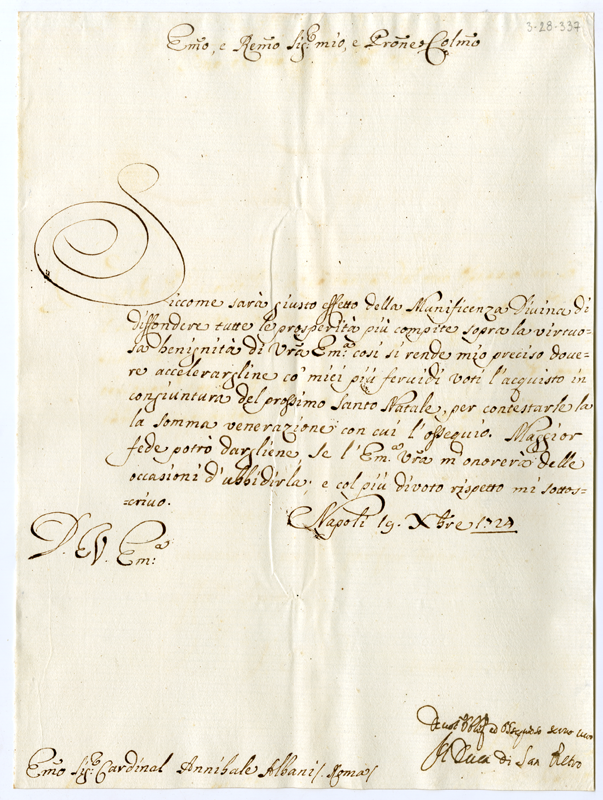 3-28-337
Emo, e Remo Sigr mio, e Prōne Colmo
Siccome sarà giusto effetto della Munificenza Divina di
diffondere tutte le prosperità più compite sopra la virtuo-
sa benignità di Vrā Emza così si rende mio preciso dove-
re accelerargline co' miei più fervidi voti l'acquisto in
congiuntura del prossimo Santo Natale, per contestarle la
la somma venerazione con cui l'ossequio. Maggior
fede potrò dargliene se l'Emza Vrā m'onorerà delle
occasioni d'ubbidirla; e col più divoto rispetto mi sottos=
=crivo.
Napoli 19. Xbre 1724
D. V. Emza
ed Ossequio servo
Il Duca di San Pietro
Emo Sigr Cardinal Annibale Albani /. Roma /